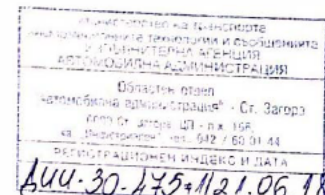 Министерство на транспорта
информационните технологии и съобщенията
ИЗПЪЛНИТЕЛНА АГЕНЦИЯ
АВТОМОБИЛНА АДМИНИСТРАЦИЯ
Областен отдел
"Автомобилна администрация" - Ст. Загора
6000 Ст. Загора ЦП - п.к. 166,
кв. тел. 042 / 60 01 44
РЕГИСТРАЦИОНЕН ИНДЕКС И ДАТА
21.06.1